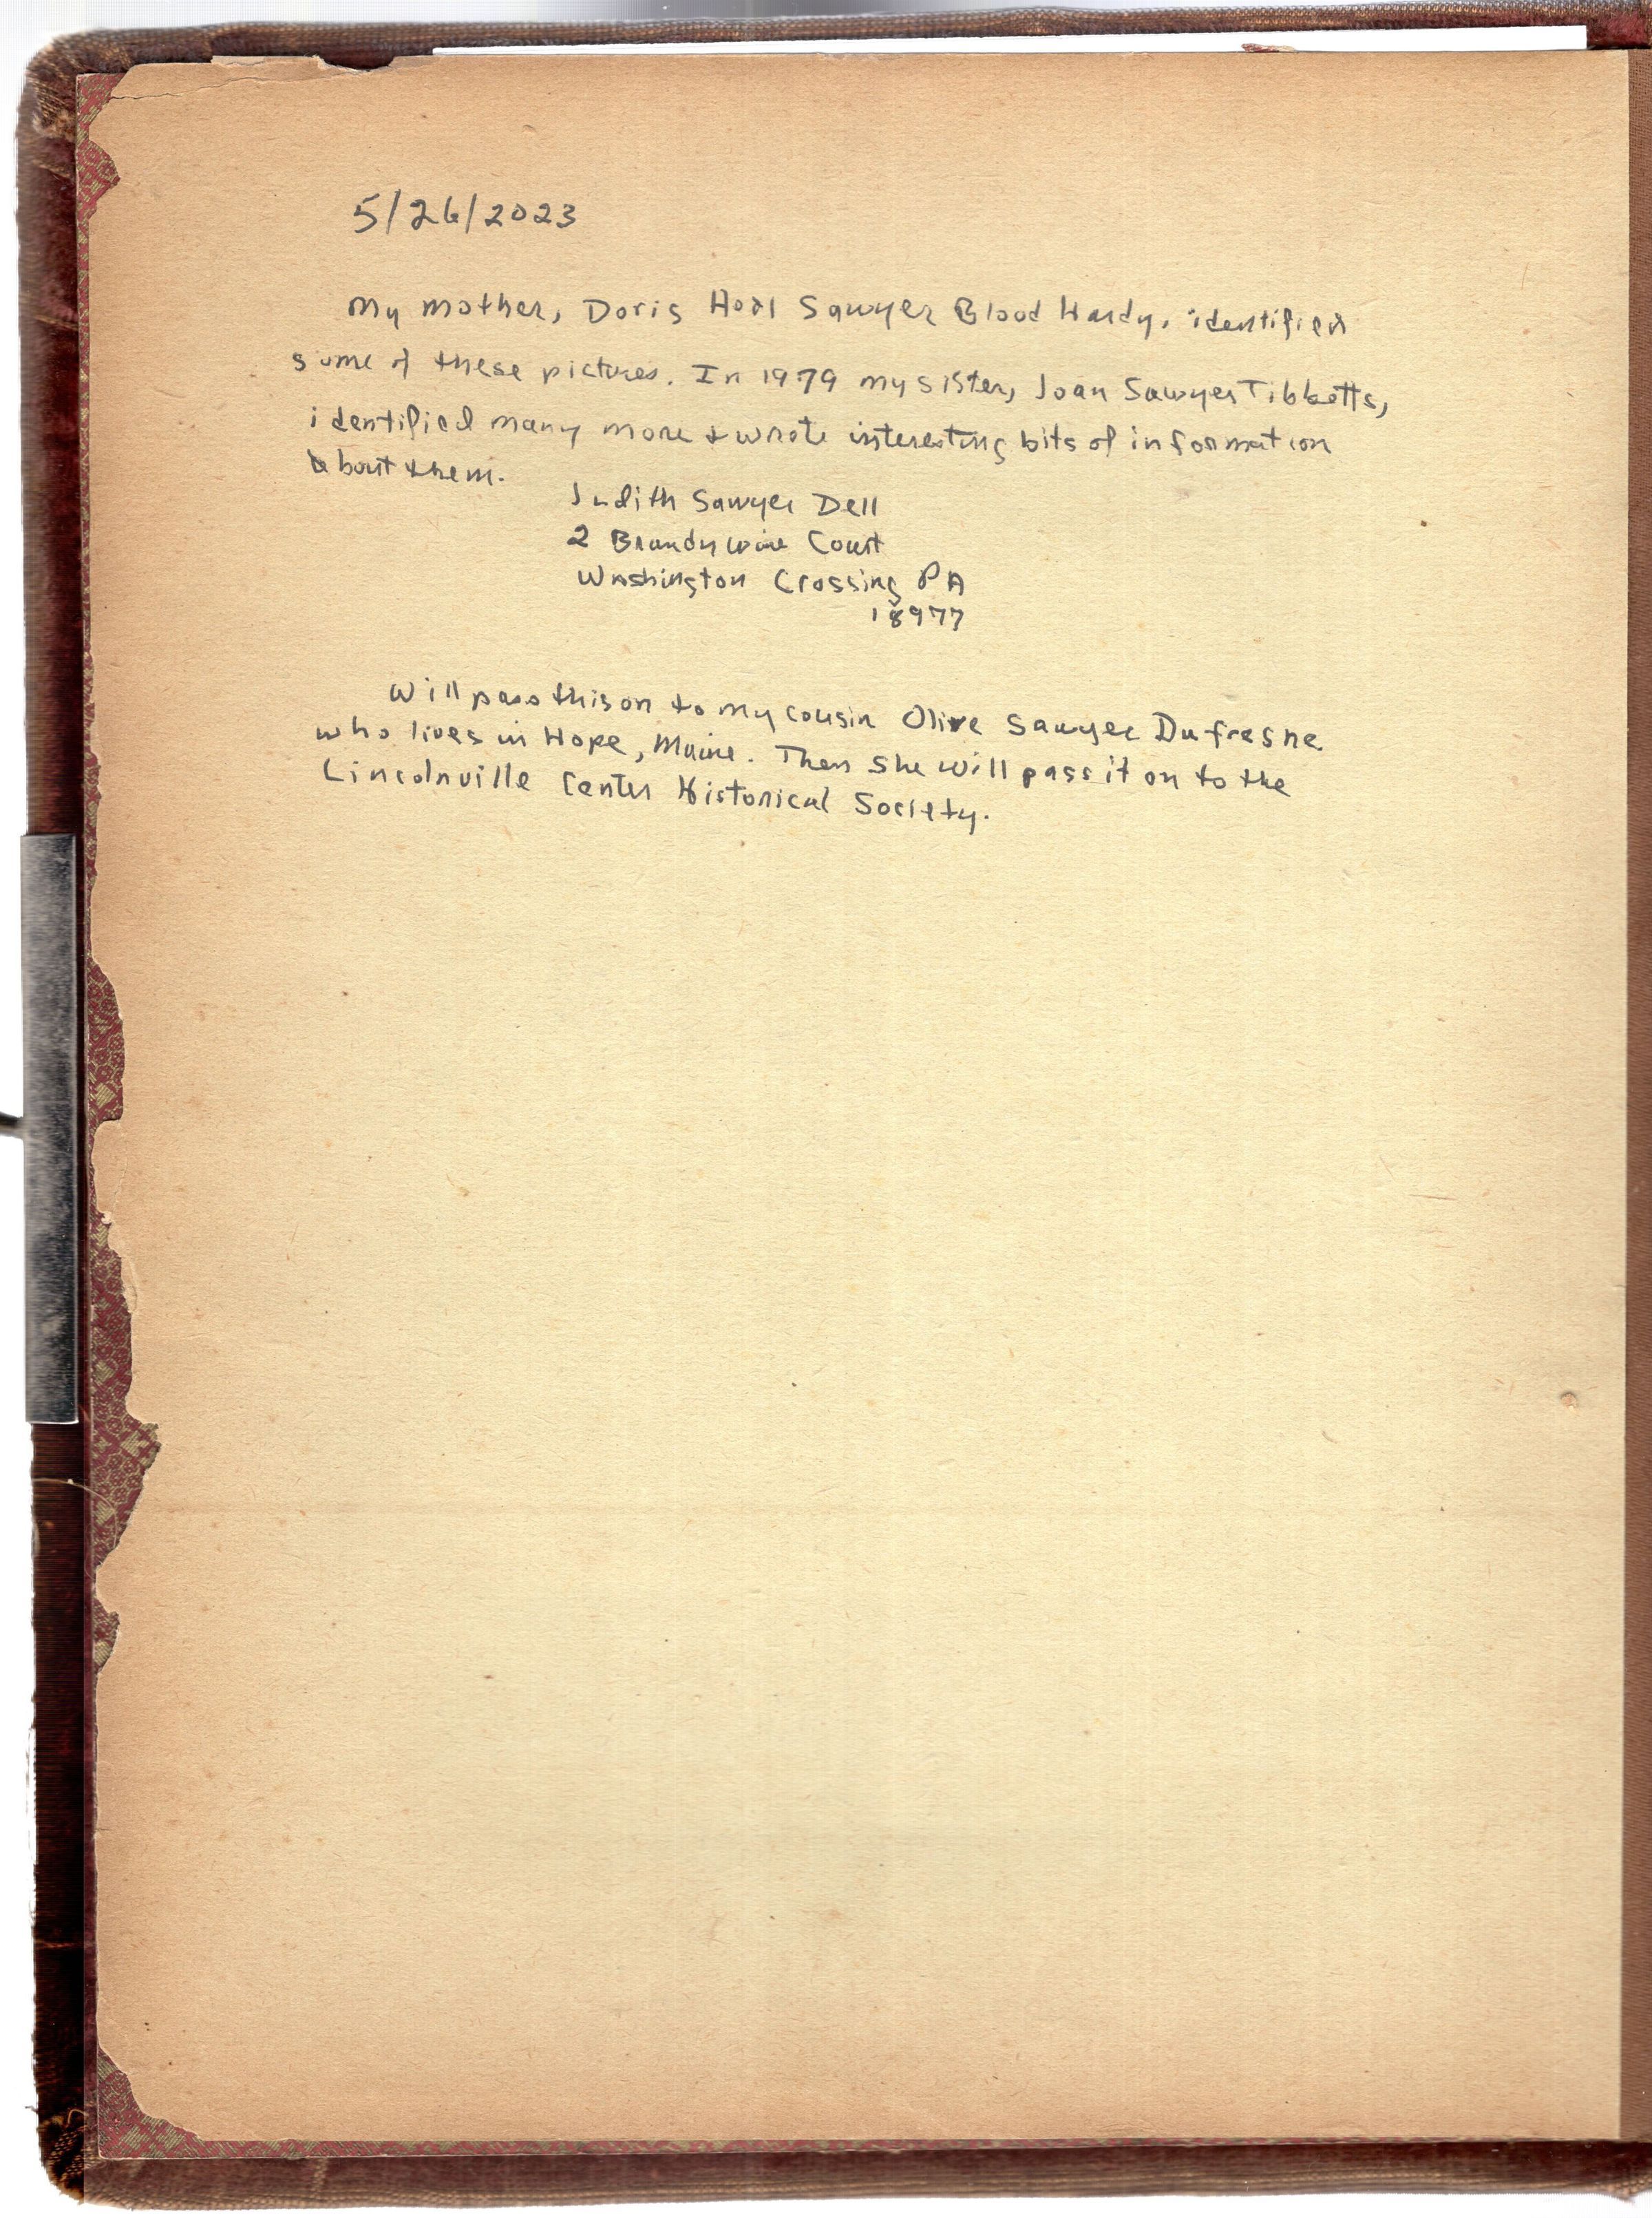 5/26/2023
My mother, Doris Hoal Sawyer Blood Hardy, identified
some of these pictures. In 1979 my sister, Joan Sawyer Tibbetts,
identified many more & wrote interesting bits of information
about them.
Judith Sawyer Dell
2 Brandywine Court
Washington Crossing PA
18977
Will pass this on to my cousin Olive Sawyer Dufresne
who lives in Hope, Maine. Then she will pass it on to the
Lincolnville Center Historical Society.